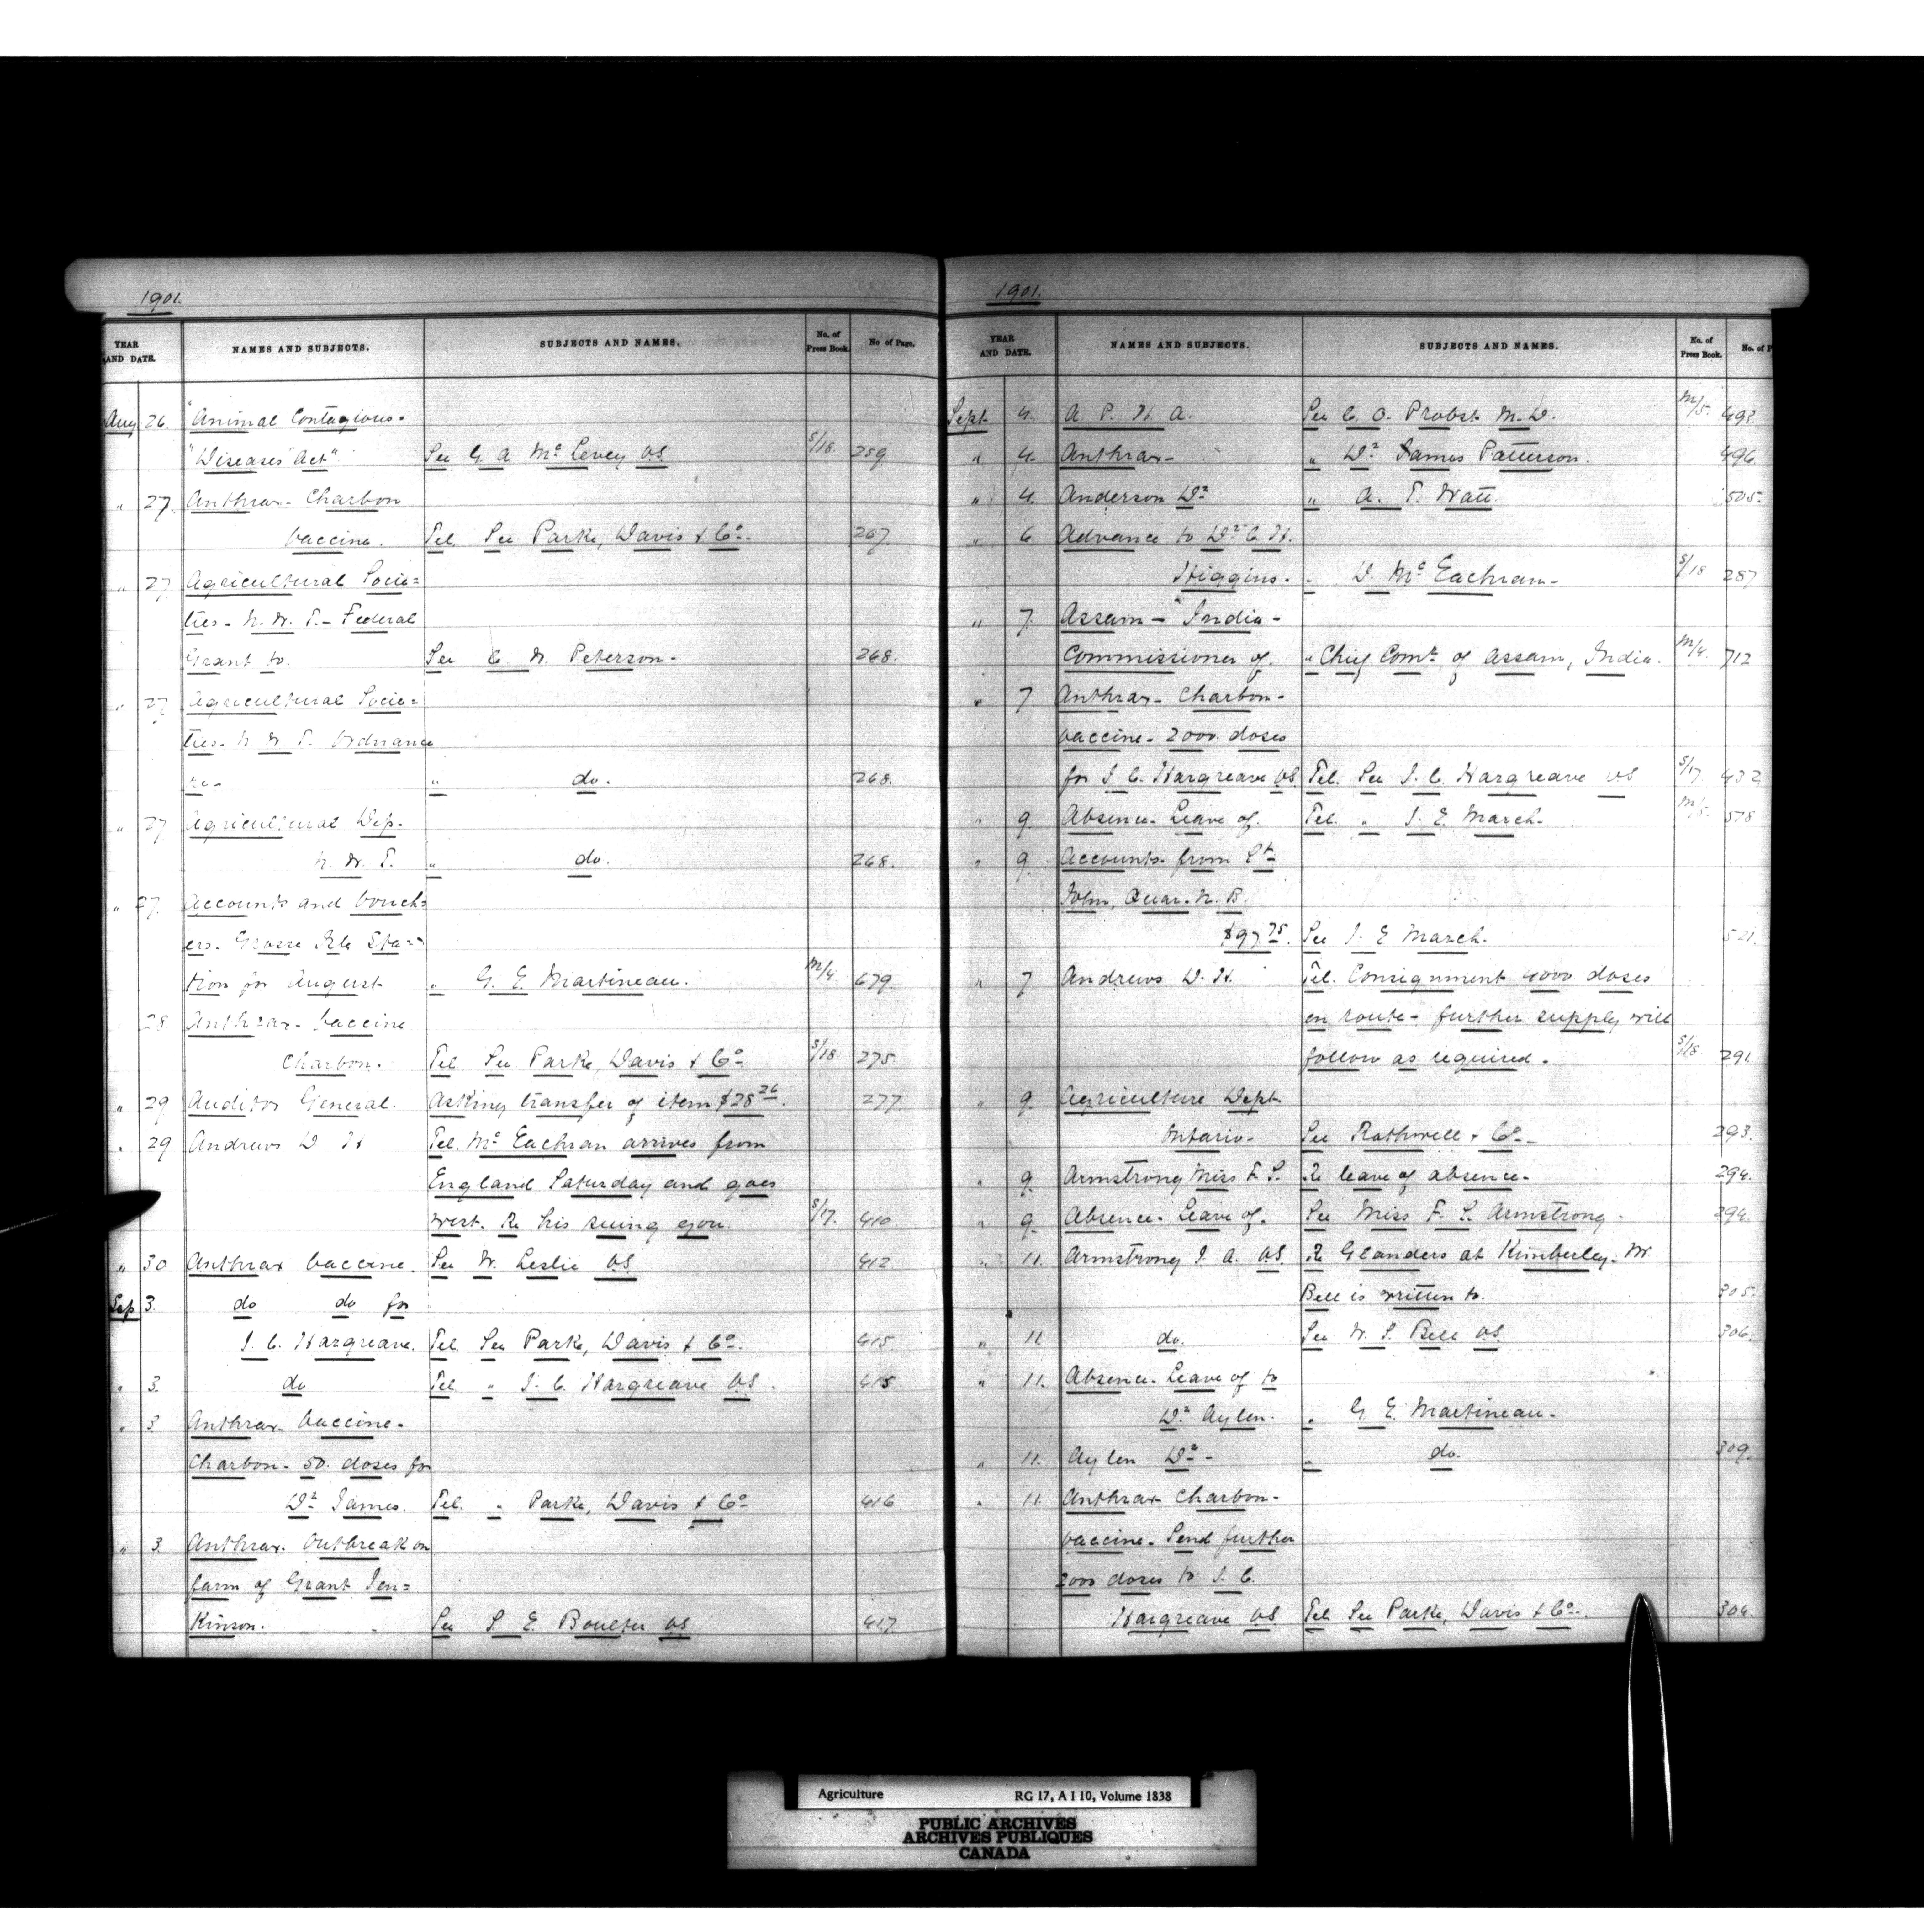 1901.
YEAR AND DATE. NAMES AND SUBJECTS. SUBJECTS AND NAMES. No. of Press Book. No of Page.
Aug 26. "Animal Contagious-
"Diseases Act". See G. A. Mc Levey V.S. S/18 259
" 27. Anthrax- Charbon
Vaccine. Tel. See Parke, Davis & Co. 267.
" 27 Agricultural Socie=
ties- N. W. T.- Federal
Grant to. See C. W. Peterson- 268.
" 27 Agricultural Socie=
ties- N W T. Ordnance
re- " do. 268.
" 27 Agricultural Dep.
N. W. T. " do. 268.
" 27. Accounts and Vouch=
ers. Grosse Isle Sta=
tion for August " G. E. Martineau. M/4 679.
28 Anthrax- Vaccine
Charbon. Tel. See Parke, Davis & Co S/18 275.
" 29 Auditor General. Asking transfer of item $28 26. 277.
" 29 Andrews D H Tel. Mc Eachran arrives from
England Saturday and goes
west. Re his suing you. S/17. 410
" 30 Anthrax Vaccine. See W. Leslie V.S. 412
Sep 3. do do for
J. C. Hargreave. Tel. See Parke, Davis & Co. 415
" 3. do Tel " J. C. Hargreave V.S. 415
" 3 Anthrax- Vaccine-
Charbon- 50. doses for
Dr James. Tel. " Parke, Davis & Co 416
" 3. Anthrax- Outbreak on
farm of Grant Jen=
Kinson. See S. E. Boulter V.S 417
1901.
YEAR AND DATE. NAMES AND SUBJECTS. SUBJECTS AND NAMES. No. of Press Book. No. of P
Sept 4. A P. H. A. See C. O. Probst M.D. M/5. 493.
" 4. Anthrax- " Dr James Patterson. 496.
" 4. Anderson Dr " A. T. Watt. 505.
" 6 Advance to Dr C. H.
Higgins- " D. Mc Eachran- S/18 287
" 7. Assam- India-
Commissioner of. " Chief Comr. of Assam, India. M/4. 712
" 7 Anthrax- Charbon-
Vaccine- 2000. doses
for J. C. Hargreave V.S. Tel. See J. C. Hargreave VS S/17 432
" 9. Absence- Leave of. Tel. " J. E. March- M/5. 578
" 9. Accounts- from St
John, Quar. N. B.
$97 75. See J. E March. 521.
" 7 Andrews D. H. Tel. Consignment 4000 doses
en route- further supply will
follow as required. S/18 291.
" 9. Agriculture Dept
Ontario- See Rothwell & Co- 293.
" 9. Armstrong Miss F. S. Re leave of absence- 294.
" 9. Absence- Leave of. See Miss F. S. Armstrong- 294.
" 11. Armstrong J. A. V.S. Re Glanders at Kimberley. W.
Bell is written to. 305.
" 11 do. See W. S. Bell V.S. 306.
" 11. Absence- Leave of to
Dr Aylen. " G. E. Martineau-
" 11. Aylen Dr- " do. 309.
" 11 Anthrax- Charbon-
Vaccine- Send further
2000 doses to J. C.
Hargreave V.S. Tel. See Parke, Davis & Co-. 304
Agriculture RG 17, A I 10, Volume 1838
PUBLIC ARCHIVES
ARCHIVES PUBLIQUES
CANADA